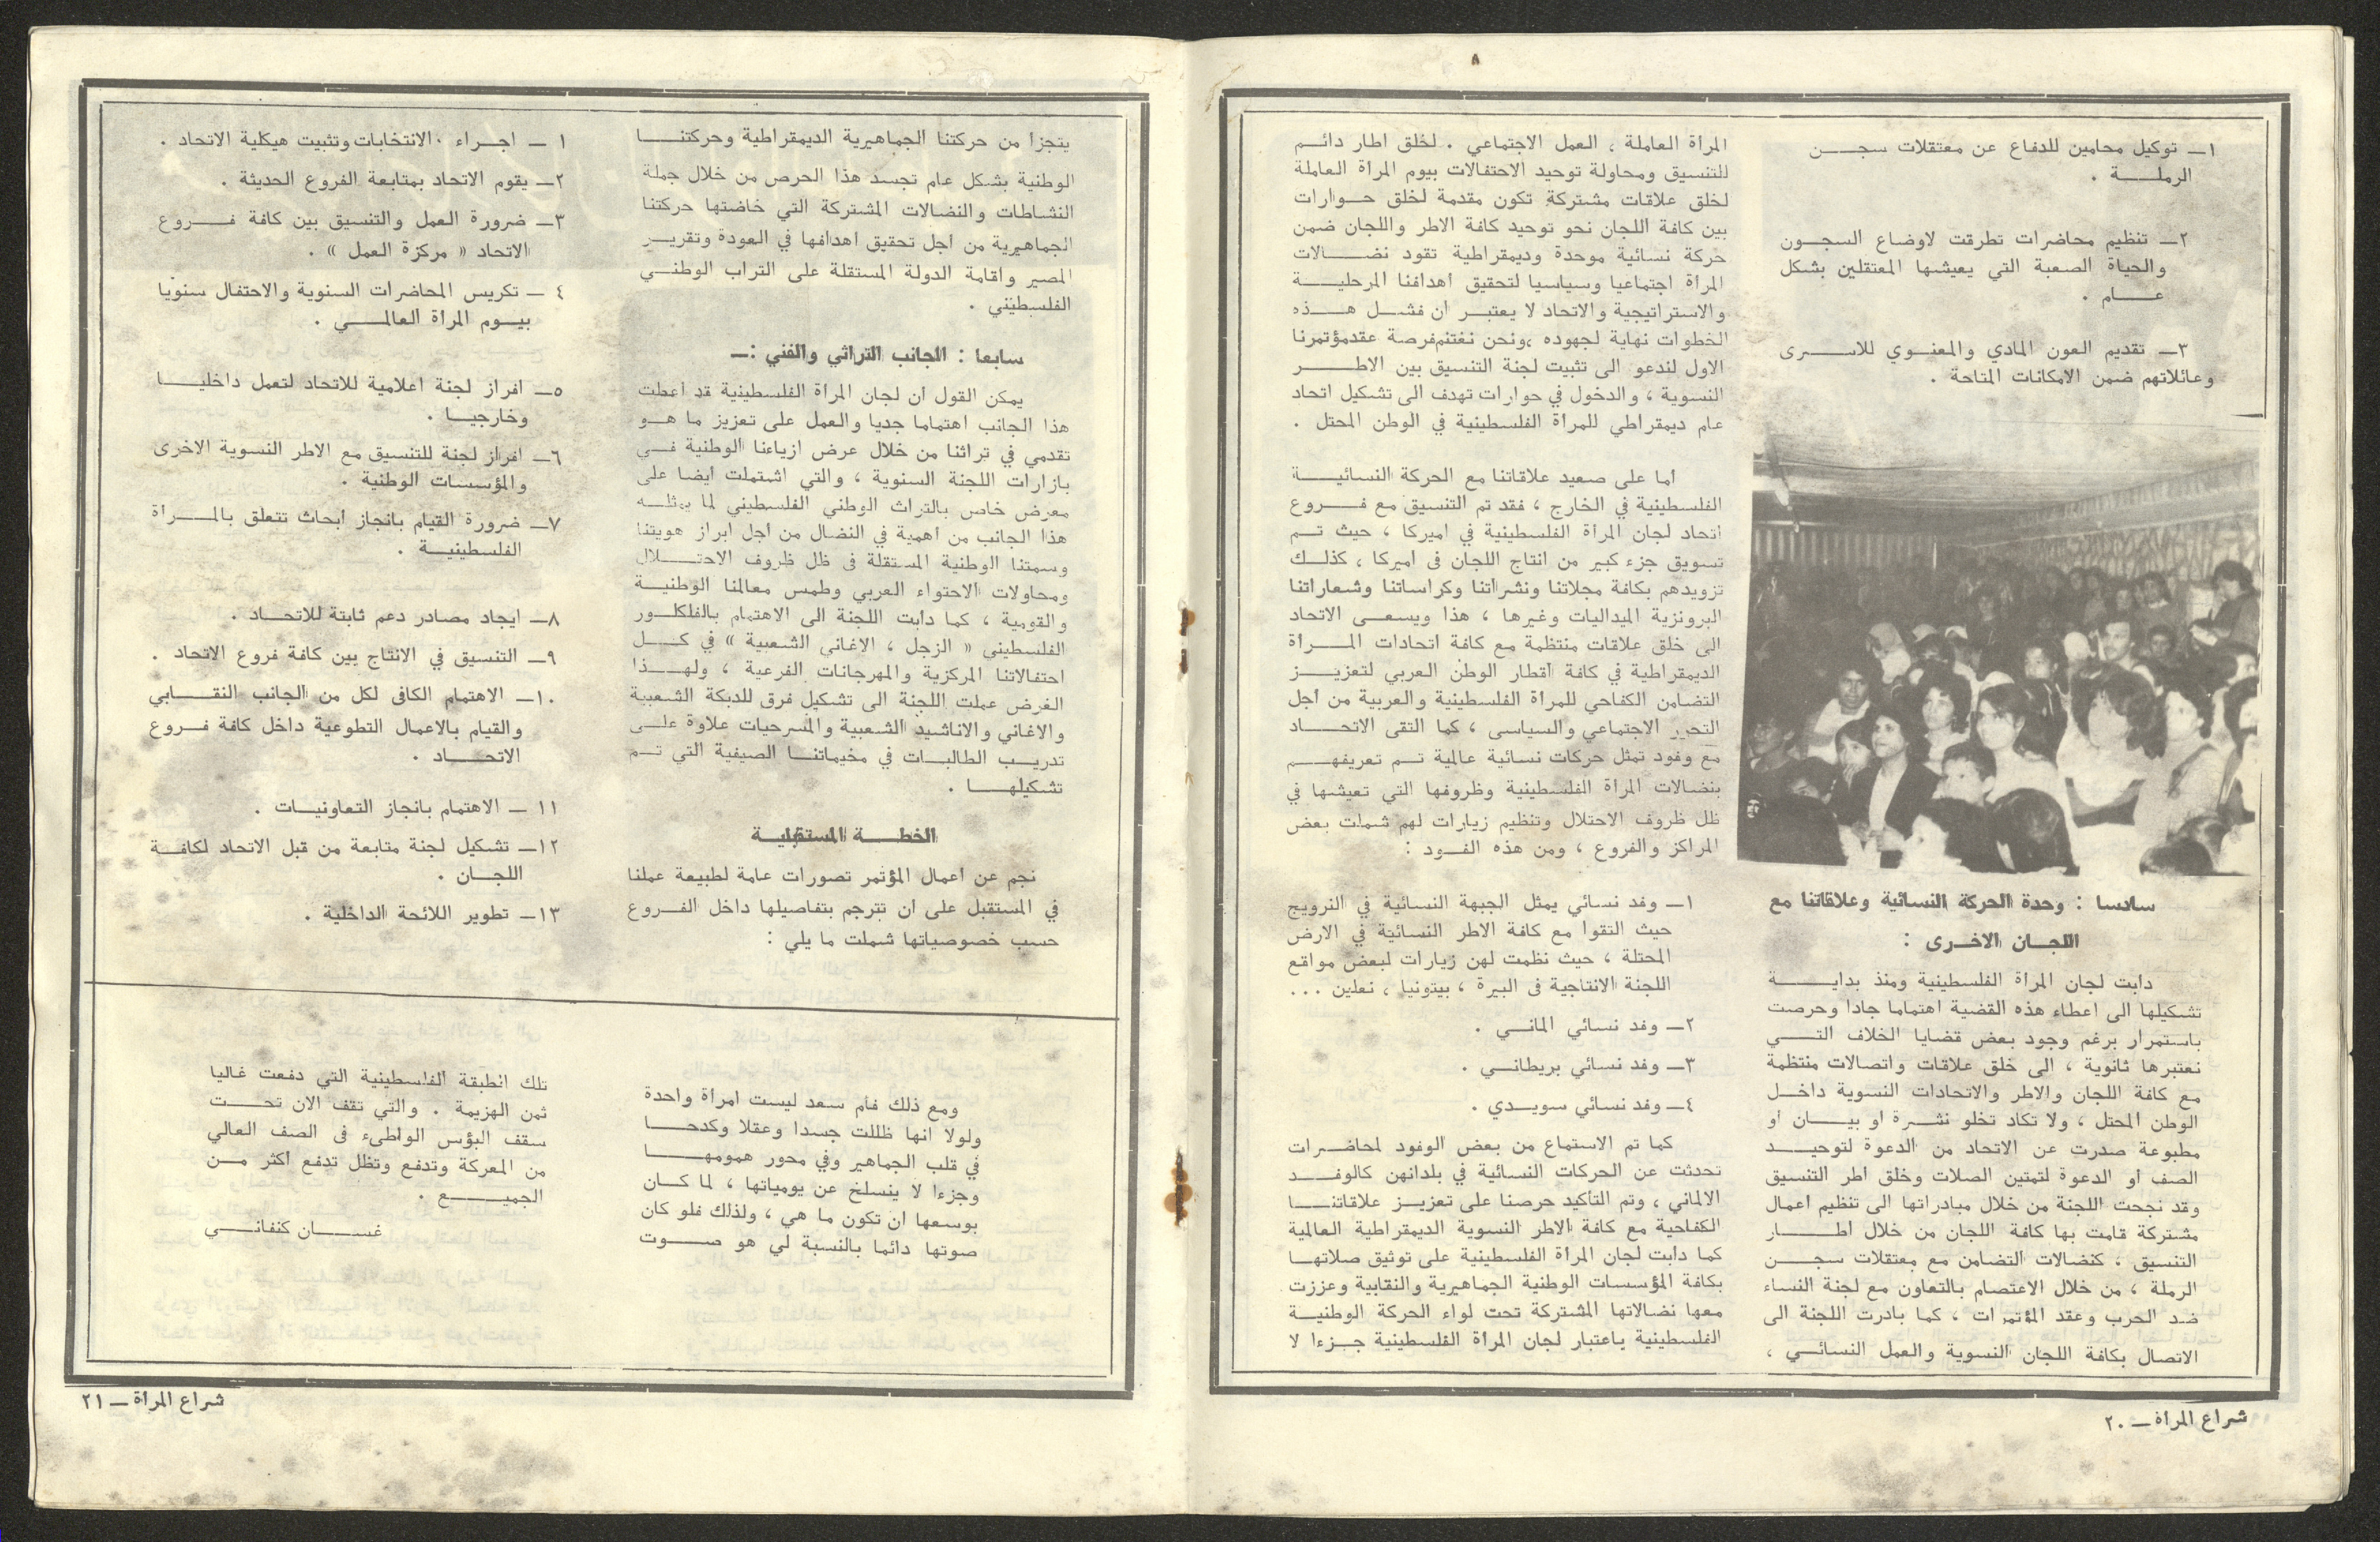 ١ــ توكيل محامين للدفاع عن معتقلات سجــن
الرملــة .
٢ــ تنظيم محاضرات تطرقت لاوضاع السجــون
والحياة الصعبة التي يعيشها المعتقلين بشكل
عــام .
٣ــ تقديم العون المادي والمعنــوي للاســرى
وعائلاتهم ضمن الامكانات المتاحة .
سادسا : وحدة الحركة النسائية وعلاقاتنا مع
اللجــان الاخــرى :
دأبت لجان المرأة الفلسطينية ومنذ بدايــة
تشكيلها الى اعطاء هذه القضية اهتماما جادا وحرصت
باستمرار برغم وجود بعض قضايا الخلاف التــي
نعتبرها ثانوية ، الى خلق علاقات واتصالات منتظمة
مع كافة اللجان والاطر والاتحادات النسوية داخــل
الوطن المحتل ، ولا تكاد تخلو نشــرة او بيــان او
مطبوعة صدرت عن الاتحاد من الدعوة لتوحيــد
الصف أو الدعوة لتمتين الصلات وخلق اطر التنسيق
وقد نجحت اللجنة من خلال مبادراتها الى تنظيم اعمال
مشتركة قامت بها كافة اللجان من خلال اطــار
التنسيق ، كنضالات التضامن مع معتقلات سجــن
الرملة ، من خلال الاعتصام بالتعاون مع لجنة النساء
ضد الحرب وعقد المؤتمرات ، كما بادرت اللجنة الى
الاتصال بكافة اللجان النسوية والعمل النسائــي ،
المرأة العاملة ، العمل الاجتماعي . لخلق اطار دائــم
للتنسيق ومحاولة توحيد الاحتفالات بيوم المرأة العاملة
لخلق علاقات مشتركة تكون مقدمة لخلق حــوارات
بين كافة اللجان نحو توحيد كافة الاطر واللجان ضمن
حركة نسائية موحدة وديمقراطية تقود نضــالات
المرأة اجتماعيا وسياسيا لتحقيق أهدافنا المرحليــة
والاستراتيجية والاتحاد لا يعتبــر ان فشــل هــذه
الخطوات نهاية لجهوده ،ونحن نغتنم فرصة عقد مؤتمرنا
الاول لندعو الى تثبيت لجنة التنسيق بين الاطــر
النسوية ، والدخول في حوارات تهدف الى تشكيل اتحاد
عام ديمقراطي للمرأة الفلسطينية في الوطن المحتل .
أما على صعيد علاقاتنا مع الحركة النسائيــة
الفلسطينية في الخارج ، فقد تم التنسيق مع فــروع
اتحاد لجان المرأة الفلسطينية في اميركا ، حيث تــم
تسويق جزء كبير من انتاج اللجان فى اميركا ، كذلــك
تزويدهم بكافة مجلاتنا ونشراتنا وكراساتنا وشعاراتنا
البرونزية الميداليات وغيرها ، هذا ويسعــى الاتحاد
الى خلق علاقات منتظمة مع كافة اتحادات المــرأة
الديمقراطية في كافة أقطار الوطن العربي لتعزيــز
التضامن الكفاحي للمرأة الفلسطينية والعربية من أجل
التحرر الاجتماعي والسياسى ، كما التقى الاتحــاد
مع وفود تمثل حركات نسائية عالمية تــم تعريفهــم
بنضالات المرأة الفلسطينية وظروفها التي تعيشها في
ظل ظروف الاحتلال وتنظيم زيارات لهم شملت بعض
المراكز والفروع ، ومن هذه الفــود :
١ــ وفد نسائي يمثل الجبهة النسائية في النرويج
حيث التقوا مع كافة الاطر النسائية في الارض
المحتلة ، حيث نظمت لهن زيارات لبعض مواقع
اللجنة الانتاجية فى البيرة ، بيتونيا ، نعلين ...
٢ــ وفد نسائي المانــي .
٣ــ وفد نسائي بريطانــي .
٤ــ وفد نسائي سويــدي .
كما تم الاستماع من بعض الوفود لمحاضــرات
تحدثت عن الحركات النسائية في بلدانهن كالوفــد
الالماني ، وتم التأكيد حرصنا على تعزيــز علاقاتنــا
الكفاحية مع كافة الاطر النسوية الديمقراطية العالمية
كما دأبت لجان المرأة الفلسطينية على توثيق صلاتهــا
بكافة المؤسسات الوطنية الجماهيرية والنقابية وعززت
معها نضالاتها المشتركة تحت لواء الحركة الوطنيــة
الفلسطينية باعتبار لجان المرأة الفلسطينية جــزءا لا
شراع المرأة ــ ٢٠
يتجزأ من حركتنا الجماهيرية الديمقراطية وحركتنــا
الوطنية بشكل عام تجسد هذا الحرص من خلال جملة
النشاطات والنضالات المشتركة التي خاضتها حركتنا
الجماهيرية من أجل تحقيق اهدافها في العودة وتقريــر
المصير واقامة الدولة المستقلة على التراب الوطنــي
الفلسطيني .
سابعا : الجانب التراثي والفني :ــ
يمكن القول أن لجان المرأة الفلسطينية قد أعطت
هذا الجانب اهتماما جديا والعمل على تعزيز ما هــو
تقدمي في تراثنا من خلال عرض ازياءنا الوطنية فــي
بازارات اللجنة السنوية ، والتي اشتملت ايضا على
معرض خاص بالتراث الوطني الفلسطيني لما يمثلــه
هذا الجانب من أهمية في النضال من أجل ابراز هويتنا
وسمتنا الوطنية المستقلة فى ظل ظروف الاحتــلال
ومحاولات الاحتواء العربي وطمس معالمنا الوطنيــة
والقومية ، كما دأبت اللجنة الى الاهتمام بالفلكلــور
الفلسطيني « الزجل ، الاغاني الشعبية » في كــل
احتفالاتنا المركزية والمهرجانات الفرعية ، ولهــذا
الغرض عملت اللجنة الى تشكيل فرق للدبكة الشعبية
والاغاني والاناشيد الشعبية والمسرحيات علاوة علــى
تدريــب الطالبــات في مخيماتنــا الصيفية التي تــم
تشكيلهــا .
الخطــة المستقبليــة
نجم عن أعمال المؤتمر تصورات عامة لطبيعة عملنا
في المستقبل على ان تترجم بتفاصيلها داخل الفــروع
حسب خصوصياتها شملت ما يلي :
١ ــ اجــراء الانتخابات وتثبيت هيكلية الاتحاد .
٢ــ يقوم الاتحاد بمتابعة الفروع الحديثة .
٣ــ ضرورة العمل والتنسيق بين كافة فــروع
الاتحاد « مركزة العمل » .
٤ ــ تكريس المحاضرات السنوية والاحتفال سنويا
بيــوم المرأة العالمــي .
٥ــ افراز لجنة اعلامية للاتحاد لتعمل داخليــا
وخارجيــا .
٦ــ افراز لجنة للتنسيق مع الاطر النسوية الاخرى
والمؤسسات الوطنية .
٧ــ ضرورة القيام بانجاز ابحاث تتعلق بالمــرأة
الفلسطينيــة .
٨ــ ايجاد مصادر دعم ثابتة للاتحــاد .
٩ــ التنسيق في الانتاج بين كافة فروع الاتحاد .
١٠ــ الاهتمام الكافى لكل من الجانب النقــابي
والقيام بالاعمال التطوعية داخل كافة فــروع
الاتحــاد .
١١ ــ الاهتمام بانجاز التعاونيــات .
١٢ــ تشكيل لجنة متابعة من قبل الاتحاد لكافــة
اللجــان .
١٣ــ تطوير اللائحة الداخلية .
ومع ذلك فأم سعد ليست امرأة واحدة
ولولا انها ظللت جسدا وعقلا وكدحــا
في قلب الجماهير وفي محور همومهــا
وجزءا لا ينسلخ عن يومياتها ، لما كــان
بوسعها ان تكون ما هي ، ولذلك فلو كان
صوتها دائما بالنسبة لي هو صــوت
تلك انطبقة الفلسطينية التي دفعت غاليا
ثمن الهزيمة . والتي تقف الان تحــت
سقف البؤس الواطىء فى الصف العالي
من المعركة وتدفع وتظل تدفع أكثر مــن
الجميــع .
غســان كنفانــي
شراع المرأة ــ ٢١